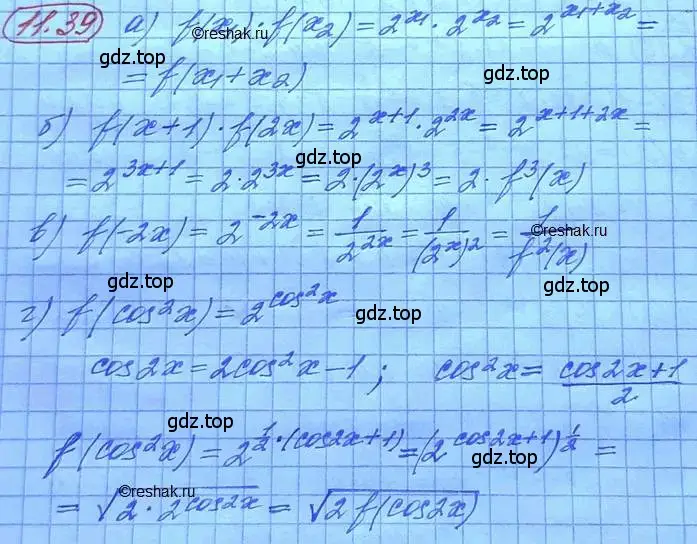 11.39 а) f(x₁)·f(x₂) = 2^x₁ · 2^x₂ = 2^(x₁+x₂) =
©reshak.ru
gdz.top gdz.top
= f(x₁+x₂)
б) f(x+1)·f(2x) = 2^(x+1) · 2^(2x) = 2^(x+1+2x) =
gdz.top
= 2^(3x+1) = 2·2^(3x) = 2·(2^x)³ = 2·f³(x)
gdz.top
в) f(-2x) = 2^(-2x) = 1/2^(2x) = 1/(2^x)² = 1/f²(x)
©reshak.ru
gdz.top gdz.top
г) f(cos²x) = 2^(cos²x)
gdz.top
cos2x = 2cos²x - 1 ; cos²x = (cos2x+1)/2
gdz.top
f(cos²x) = 2^(1/2·(cos2x+1)) = (2^(cos2x+1))^(1/2) =
gdz.top
©reshak.ru
= √(2·2^(cos2x)) = √(2f(cos2x))
gdz.top